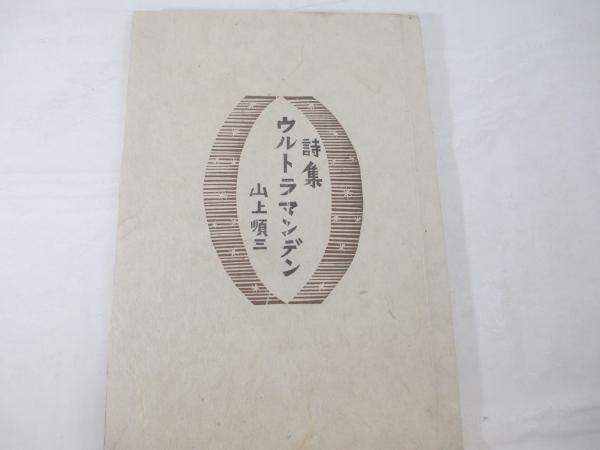 詩集
ウルトラマンデン
山上順三